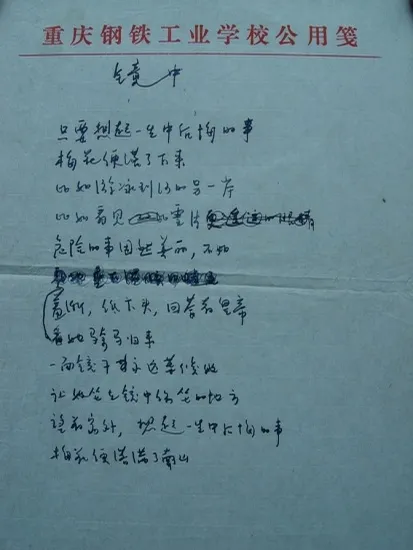 重庆钢铁工业学校公用笺
镜中
只要想起一生中后悔的事
梅花便落了下来
比如游泳到河的另一岸
比如看见 雪片
危险的事固然美丽，不如
羞惭，低下头，回答着皇帝
看她骑马归来
一面镜子永远等候她
让她坐到镜中常坐的地方
望着窗外，想起一生中后悔的事
梅花便落满了南山